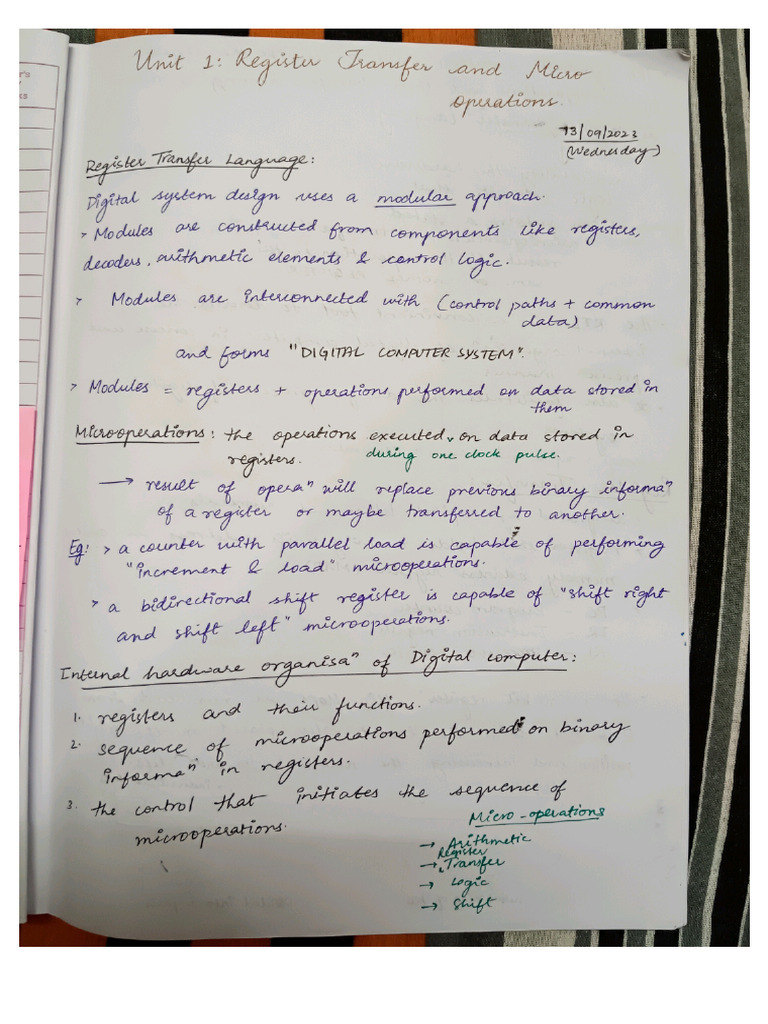 Unit 1: Register Transfer and Micro
operations.
13/09/2023
(Wednesday)
Register Transfer Language:
Digital system design uses a modular approach.
> Modules are constructed from components like registers,
decoders, arithmetic elements & control logic.
> Modules are interconnected with (control paths + common
data)
and forms "DIGITAL COMPUTER SYSTEM".
> Modules = registers + operations performed on data stored in
them
Microoperations: the operations executed on data stored in
registers. during one clock pulse.
→ result of opera" will replace previous binary informa"
of a register or maybe transferred to another.
Eg: > a counter with parallel load is capable of performing
"increment & load" microoperations.
> a bidirectional shift register is capable of "shift right
and shift left" microoperations.
Internal hardware organisa" of Digital computer:
1. registers and their functions.
2. sequence of microoperations performed on binary
informa" in registers.
3. the control that initiates the sequence of
microoperations.
Micro-operations
→ Arithmetic
Register
→ Transfer
→ Logic
→ Shift